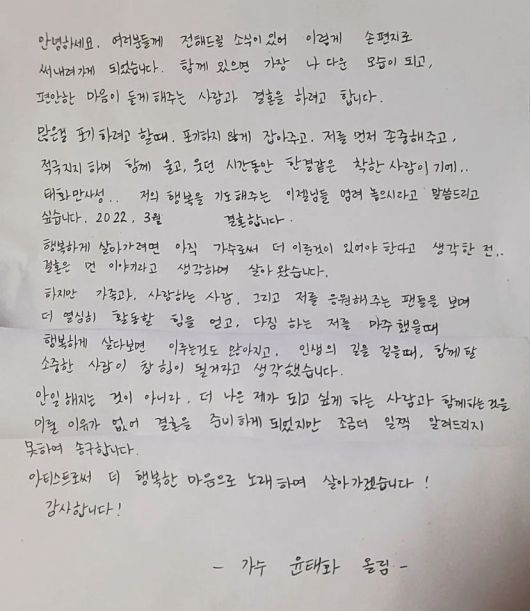 안녕하세요. 여러분들께 전해드릴 소식이 있어 이렇게 손편지로
써내려가게 되었습니다. 함께 있으면 가장 나 다운 모습이 되고,
편안한 마음이 들게 해주는 사람과 결혼을 하려고 합니다.
많은걸 포기하려고 할때. 포기하지 않게 잡아주고. 저를 먼저 존중해주고,
적극지지 하며 함께 울고, 웃던 시간동안 한결같은 착한 사람이기에..
태화만사성.. 저의 행복을 기도해주는 이젤님들 염려 놓으시라고 말씀드리고
싶습니다. 2022. 3월 결혼합니다.
행복하게 살아가려면 아직 가수로써 더 이룬것이 있어야 한다고 생각한 전..
결혼은 먼 이야기라고 생각하며 살아 왔습니다.
하지만 가족과, 사랑하는 사람, 그리고 저를 응원해주는 팬들을 보며
더 열심히 활동할 힘을 얻고, 다짐 하는 저를 마주했을때
행복하게 살다보면 이루는것도 많아지고, 인생의 길을 걸을때, 함께할
소중한 사람이 참 힘이 될거라고 생각했습니다.
안일해지는 것이 아니라, 더 나은 제가 되고 싶게 하는 사람과 함께하는것을
미룰 이유가 없어 결혼을 준비하게 되었지만 조금더 일찍 알려드리지
못하여 송구합니다.
아티스트로써 더 행복한 마음으로 노래하며 살아가겠습니다!
감사합니다!
- 가수 윤태화 올림 -